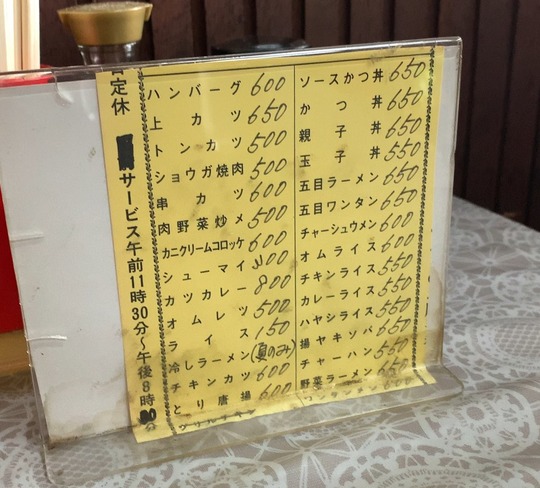 定休
サービス午前11時30分～午後8時
ハンバーグ 600
上カツ 650
トンカツ 500
ショウガ焼肉 500
串カツ 600
肉野菜炒メ 500
カニクリームコロッケ 600
シューマイ
カツカレー 800
オムレツ 500
ライス 150
冷しラーメン (夏のみ)
チキンカツ 600
とり唐揚 600
ソースかつ丼 650
かつ丼 650
親子丼 650
玉子丼 550
五目ラーメン 650
五目ワンタン 650
チャーシュウメン 600
オムライス 600
チキンライス 550
カレーライス 550
ハヤシライス 550
揚ヤキソバ 650
チャーハン 550
野菜ラーメン 600